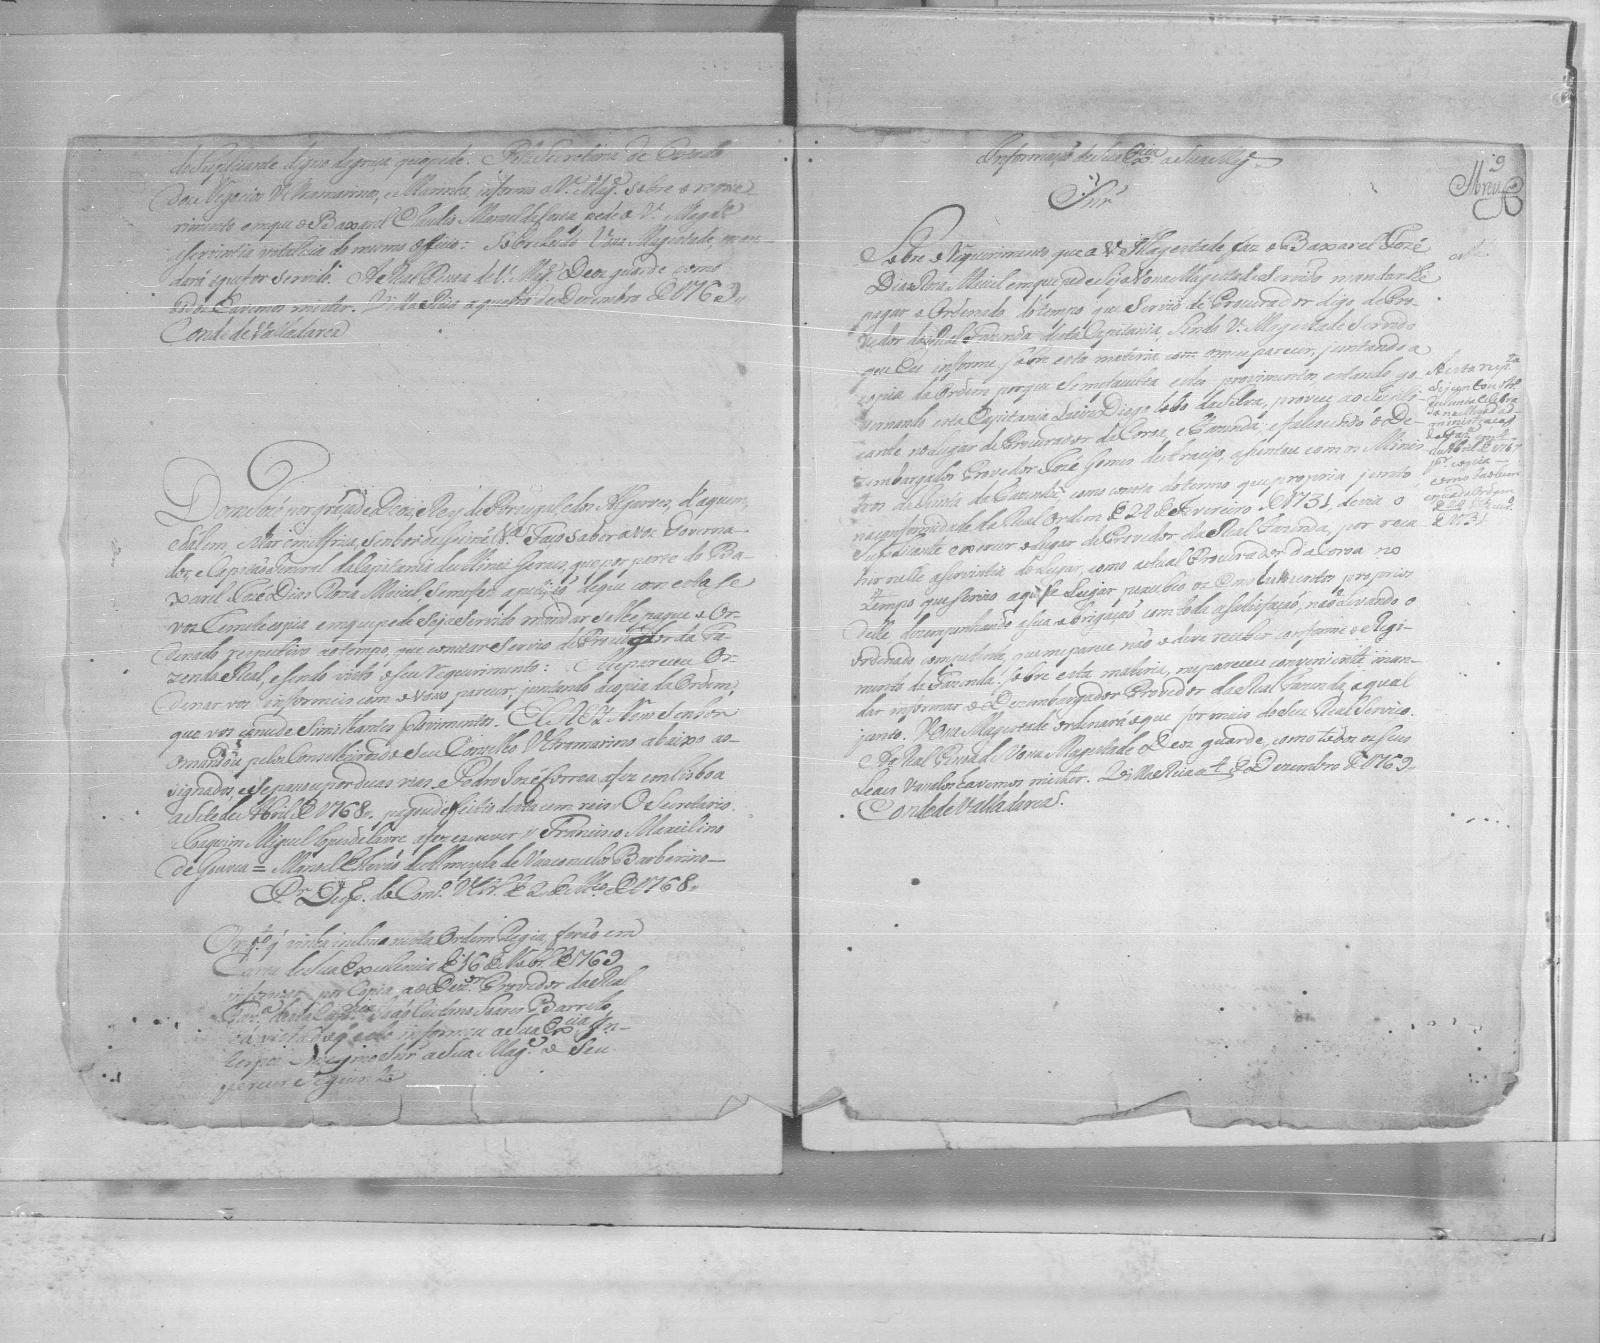 do Suplicante digno da graça que pede. Pela Secretaria de Estado
dos Negocios Ultramarinos, e Marinha, informo a V. Mag.e sobre o reque
rimento em que o Baxarel Claudio Manoel da Costa, pede a V. Magde
a serventia vitalicia do mesmo officio: Sobretudo Vossa Magestade, man-
dará o que for servido. A Real Pessoa de V. Mag.e Deos guarde como
todos havemos mister. Villa Rica a quatro de Dezembro de 1769
Conde de Valladares
Dom José por graça de Deos, Rey de Portugal, e dos Algarves, d'aquem,
e dalem, Mar em Africa, Senhor de Guiné V.a Faço saber a vos Governa-
dor, e Capitão General da Capitania de Minas Geraes, que por parte do Ba-
xarel José Dias Roza Maciel se me fez a petição de que com esta se
vos remete copia em que pede seja servido mandar se lhe pague o Or-
denado respectivo ao tempo, que constar servio de Provedor da Fa-
zenda Real, e sendo visto o seu requerimento: Me pareceu Or-
denar vos informeis com o vosso parecer, juntando a copia da Ordem,
que vos concede similhantes provimentos. El Rey Nosso Senhor
o mandou pelos Conselheiros do seu Conselho Ultramarino abaixo as-
signados, e se passou por duas vias. Pedro José Correa a fez em Lisboa
a sete de Abril de 1768. pagou de feitio desta cem reis. O Secretario
Joaquim Miguel Lopes de Lavre a fez escrever // Francisco Marcelino
de Gouvea = Manoel Estevão de Almeyda de Vasconcelos Barberino
Por Desp. do Cons.o Ultr. de 2 de Mço de 1768.
informar por Copia ao Dez.or Provedor da Real
Faz.a desta Cap.nia João Caetano Soares Barreto,
e á vista do q' este informou a Sua Ex.cia In-
terpoz o mesmo Snr' a Sua Mag.e o seu
parecer seguinte
Informação de Sua Ex.cia a Sua Mag.e
9
Abreu
Snr'
Sobre o requerimento que a V. Magestade faz o Baxarel José
Dias Roza Maciel em que pede seja Vossa Magestade servido mandar lhe
pagar o Ordenado do tempo que servio de Procurador digo de Pro-
vedor da Real Fazenda desta Capitania, sendo V. Magestade servido
que Eu informe sobre esta materia com o meu parecer, juntando a
copia da Ordem porque se me faculta estes provimentos, estando go-
vernando esta Capitania Luis Diogo Lobo da Silva, proveu ao Supli-
cante no lugar de Procurador da Coroa, e Fazenda; e falecendo o De-
zembargador Provedor José Gomes de Araujo, assentou com os Minis-
tros da Junta da Fazenda, como consta do termo que por copia junto
na conformidade da Real Ordem de 22 de Fevereiro de 1731, devia o
Suplicante exercer o lugar de Provedor da Real Fazenda, por reca-
hir nelle a serventia do lugar, como actual Procurador da Coroa no
tempo que servio aquelle Lugar percebeo os Emolumentos proprios
delle dezempenhando a sua obrigação com toda a satisfação, não levando o
ordenado competente, que me parece não o deve receber conforme o Regi-
mento da Fazenda. Sobre esta materia, me pareceu conveniente man-
dar informar o Dezembargador Provedor da Real Fazenda, o qual
junto. Vossa Magestade ordenará o que for mais do seu Real Serviço.
A Real Pessoa de Vossa Magestade Deos guarde, como todos os seus
Leaes Vassalos havemos mister. Villa Rica 4 de Dezembro de 1769.
Conde de Valladares.